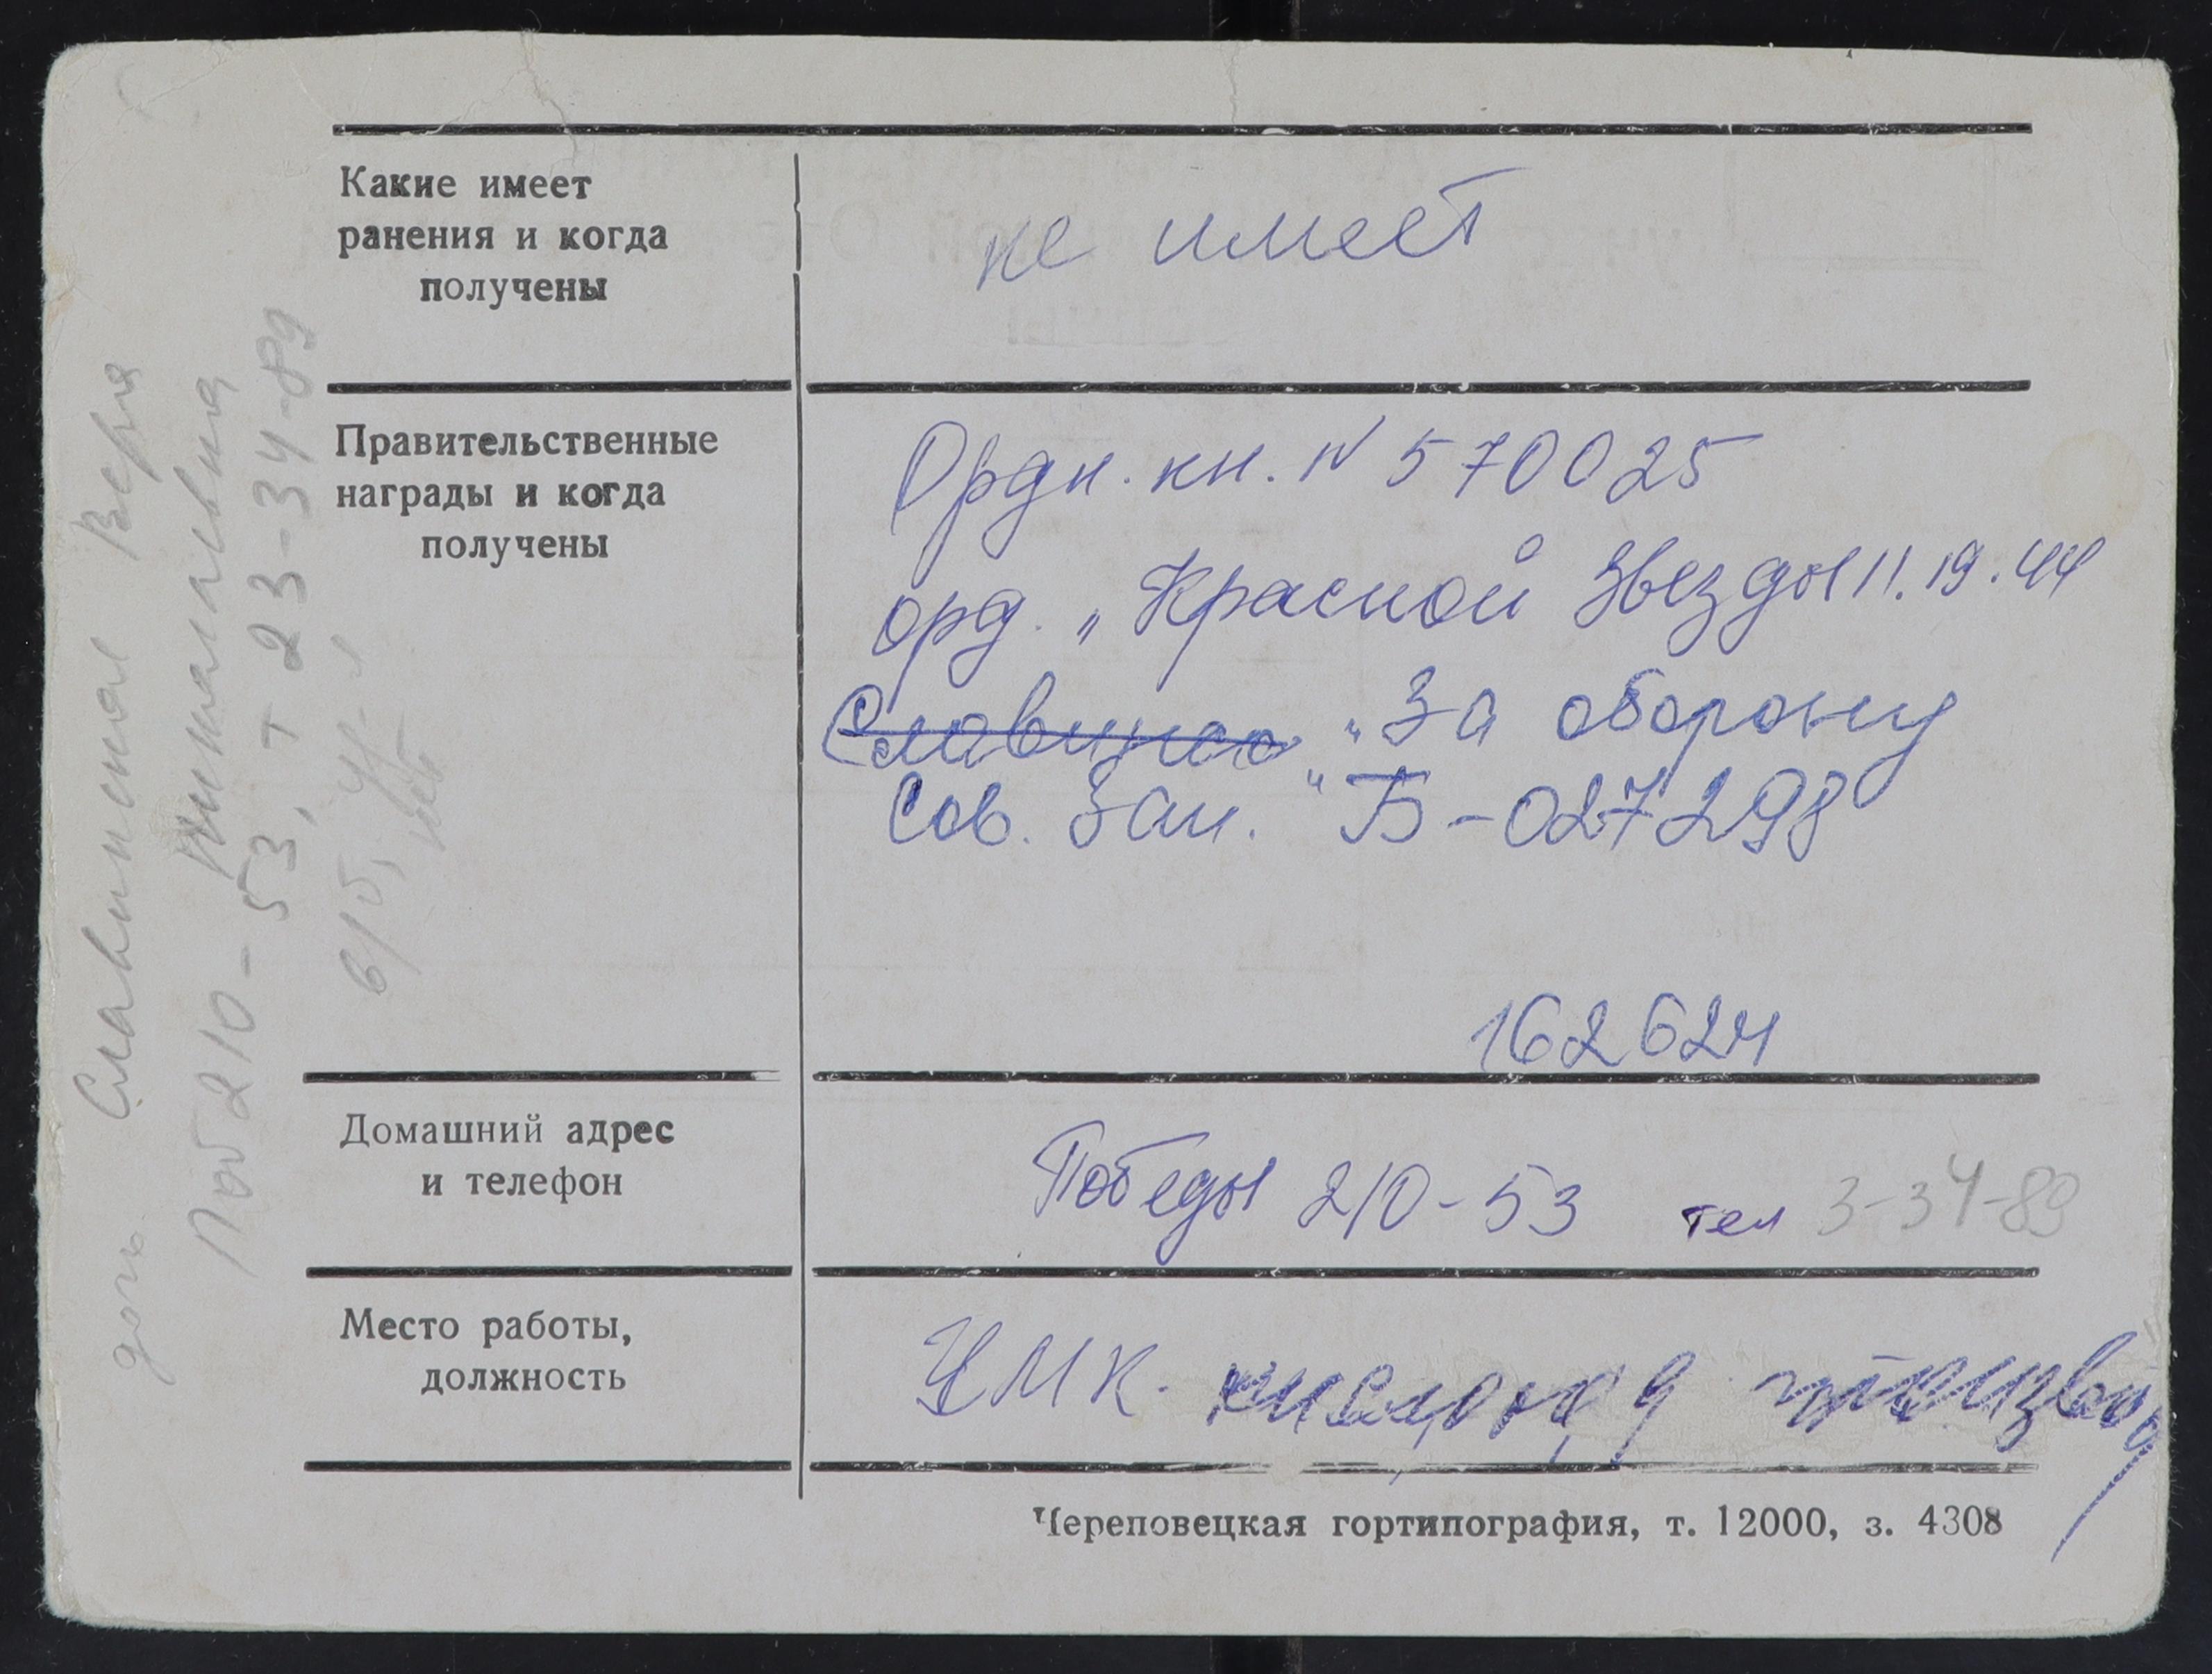 Какие имеет
ранения и когда
получены
не имеет
Правительственные
награды и когда
получены
Ордн. кн. № 570025
орд. „Красной Звезды 11.19.44
Славинско „За оборону
Сов. Зап." Б-027298
162624
Домашний адрес
и телефон
Победы 210-53 тел 3-34-89
Место работы,
должность
ЧМК. кислород производ
Череповецкая гортипография, т. 12000, з. 4308
дочь Славинская Вера
Николаевна
Поб 210-53, т 23-34-89
в/б, уч-